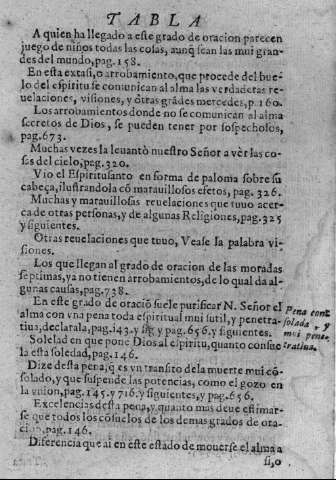 TABLA
A quien ha llegado a este grado de oracion parecen
juego de niños todas las cosas, aunq̃ sean las mui gran-
des del mundo, pag. 158.
En esta extasi, o arrobamiento, que procede del bue-
lo del espiritu se comunican al alma las verdaderas re-
uelaciones, visiones, y otras grãdes mercedes, p. 160.
Los arrobamientos donde no se comunican al alma
secretos de Dios, se pueden tener por sospechosos,
pag. 673.
Muchas vezes la leuantò nuestro Señor a vèr las co-
sas del cielo, pag. 320.
Vio el Espiritusanto en forma de paloma sobre su
cabeça, ilustrandola cõ marauillosos efetos, pag. 326.
Muchas y marauillosas reuelaciones que tuuo acer-
ca de otras personas, y de algunas Religiones, pag. 325
y siguientes.
Otras reuelaciones que tuuo, Vease la palabra vi-
siones.
Los que llegan al grado de oracion de las moradas
septimas, ya no tienen arrobamientos, de lo qual da al-
gunas causas, pag. 738.
En este grado de oraciõ suele purificar N. Señor el
alma con vna pena toda espiritual mui sutil, y penetra-
tiua, declarala, pag. 143. y sig. y pag. 656. y siguientes.
pena cont
solada, y
mui pene-
tratiua.
Soledad en que pone Dios al espiritu, quanto consue
la esta soledad, pag. 146.
Dize desta pena, q̃ es vn transito dela muerte mui cõ-
solado, y que suspende las potencias, como el gozo en
la vnion, pag. 145. y 716. y siguientes, y pag. 656.
Excelencias desta pena, y quanto mas deue estimar-
se que todos los cõsuelos de los demas grados de ora-
cion, pag. 146.
Diferencia que ai en este estado de mouerse el alma a
si, o